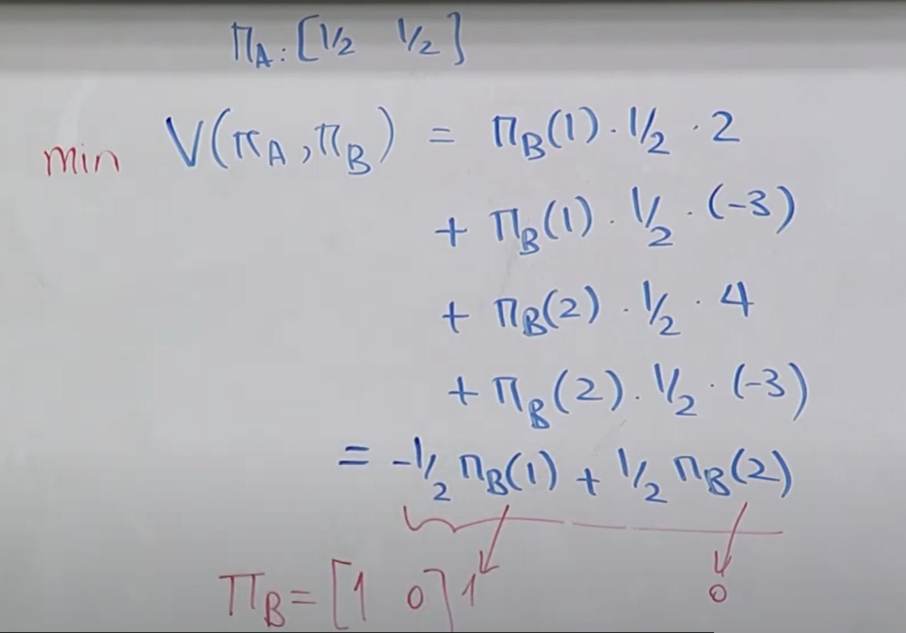 π_A: [1/2 1/2]
min V(π_A, π_B) = π_B(1) · 1/2 · 2
+ π_B(1) · 1/2 · (-3)
+ π_B(2) · 1/2 · 4
+ π_B(2) · 1/2 · (-3)
= -1/2 π_B(1) + 1/2 π_B(2)
π_B = [1 0] 1 0